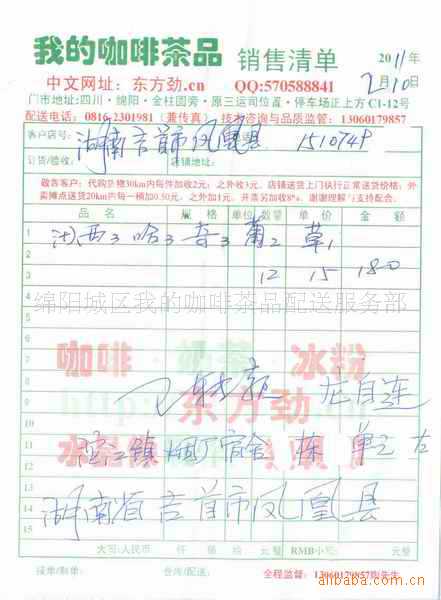 我的咖啡茶品 销售清单 2011年
中文网址：东方劲.cn QQ:570588841 2月10日
门市地址:四川·绵阳·金柱圆旁·原三运司位置·停车场正上方C1-12号
配送电话：0816-2301981（兼传真）技术咨询与品质监督：13060179857
客户店名: 湖南吉首市凤凰县
订货/验收: 店铺地址:
敬告客户：代购货物30km内每件加收2元；之外收3元。店铺送货上门执行正常送货价格；外
卖摊点送货20km内每一桶加0.50元，之外加1元。开票另加收8%。谢谢理解与支持配合。
品名 规格 单位 数量 单价 金额
1 3 哈3 3 2 草1
2 12 15 180
3
4 绵阳城区我的咖啡茶品配送服务部
5
6 咖啡·奶茶·冰粉
7
8 龙自连
9 东方劲.cn
10
11 镇 厂宿舍 栋 单元 右
12
13
14 湖南省吉首市凤凰县
15
大写:人民币 仟 佰 拾 元整 RMB小写: 元整
接单/制单: 仓库/配送: 全程监督：13060179857陶先生
alibaba.com.cn